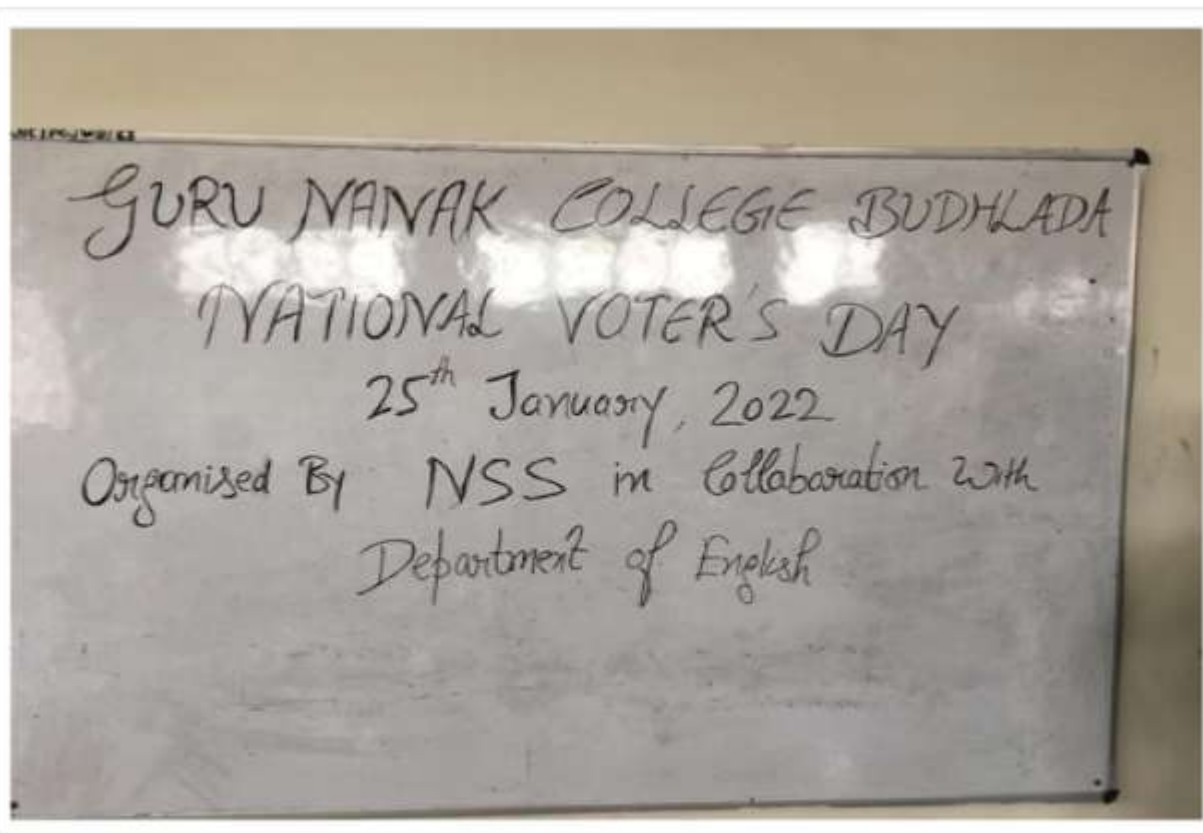 GURU NANAK COLLEGE BUDHLADA
NATIONAL VOTER'S DAY
25th January, 2022
Organised By NSS in Collaboration With
Department of English